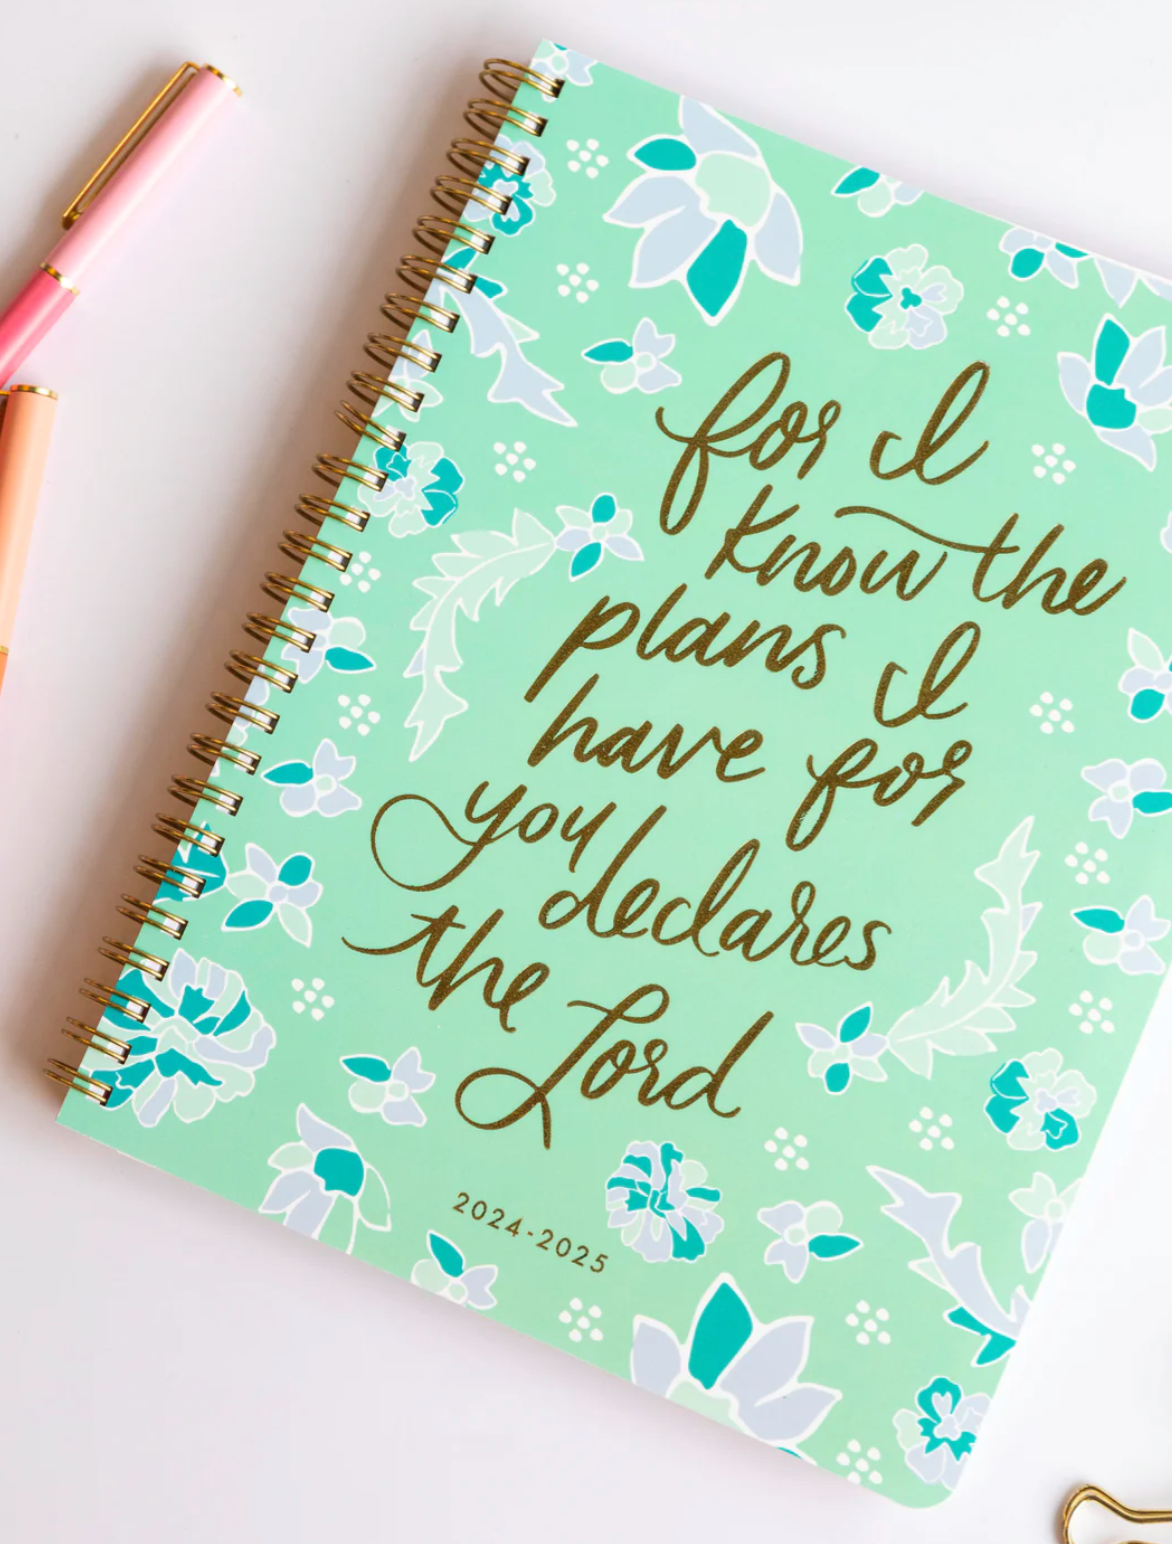 for I
know the
plans I
have for
you declares
the Lord
2024-2025